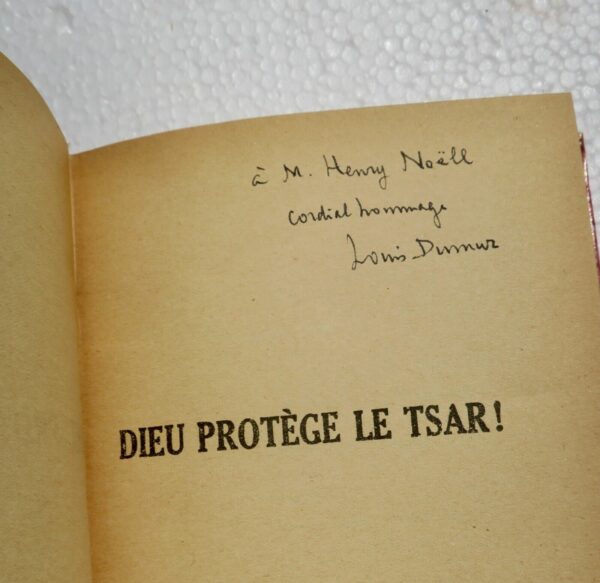 à M. Henry Noëll
Cordial hommage
Louis Dumur
DIEU PROTÈGE LE TSAR!